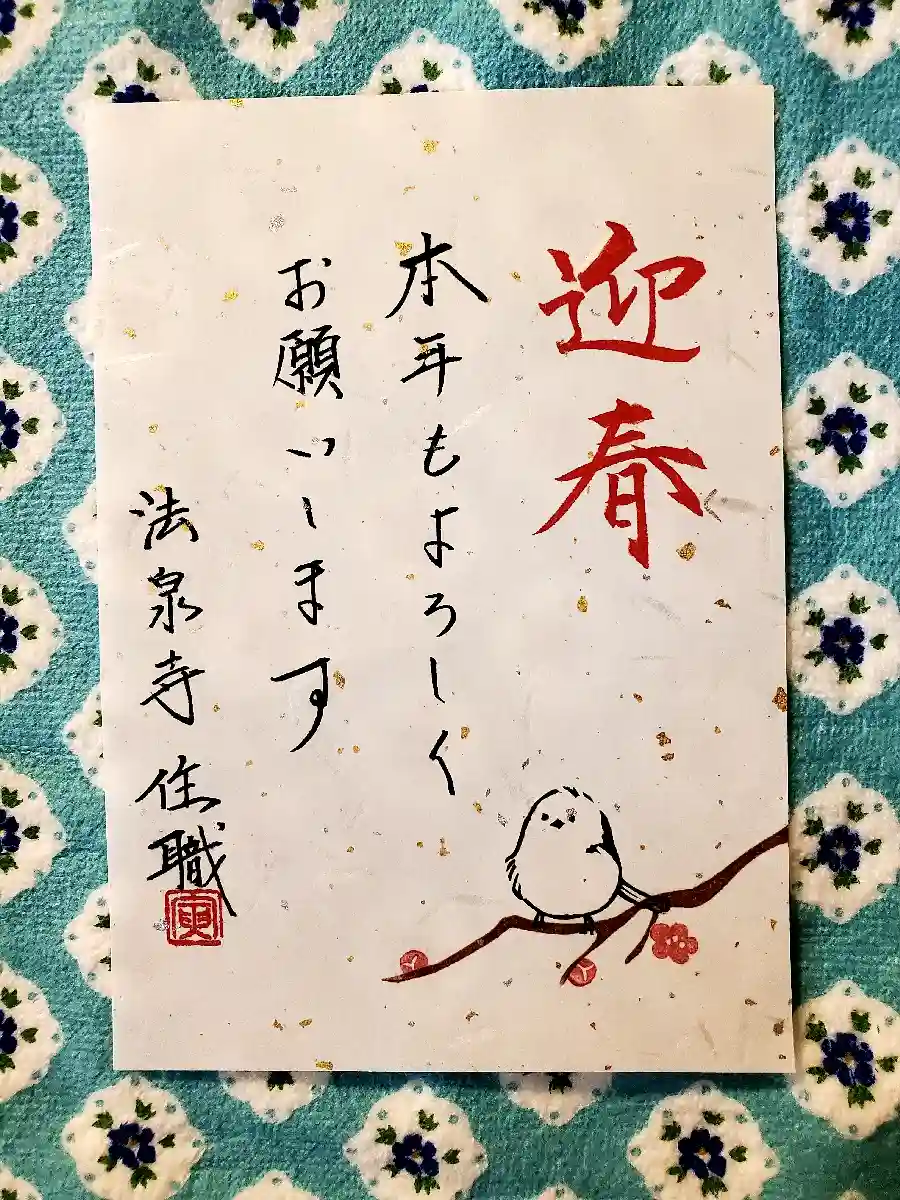 迎春
本年もよろしく
お願いします
法泉寺 住職